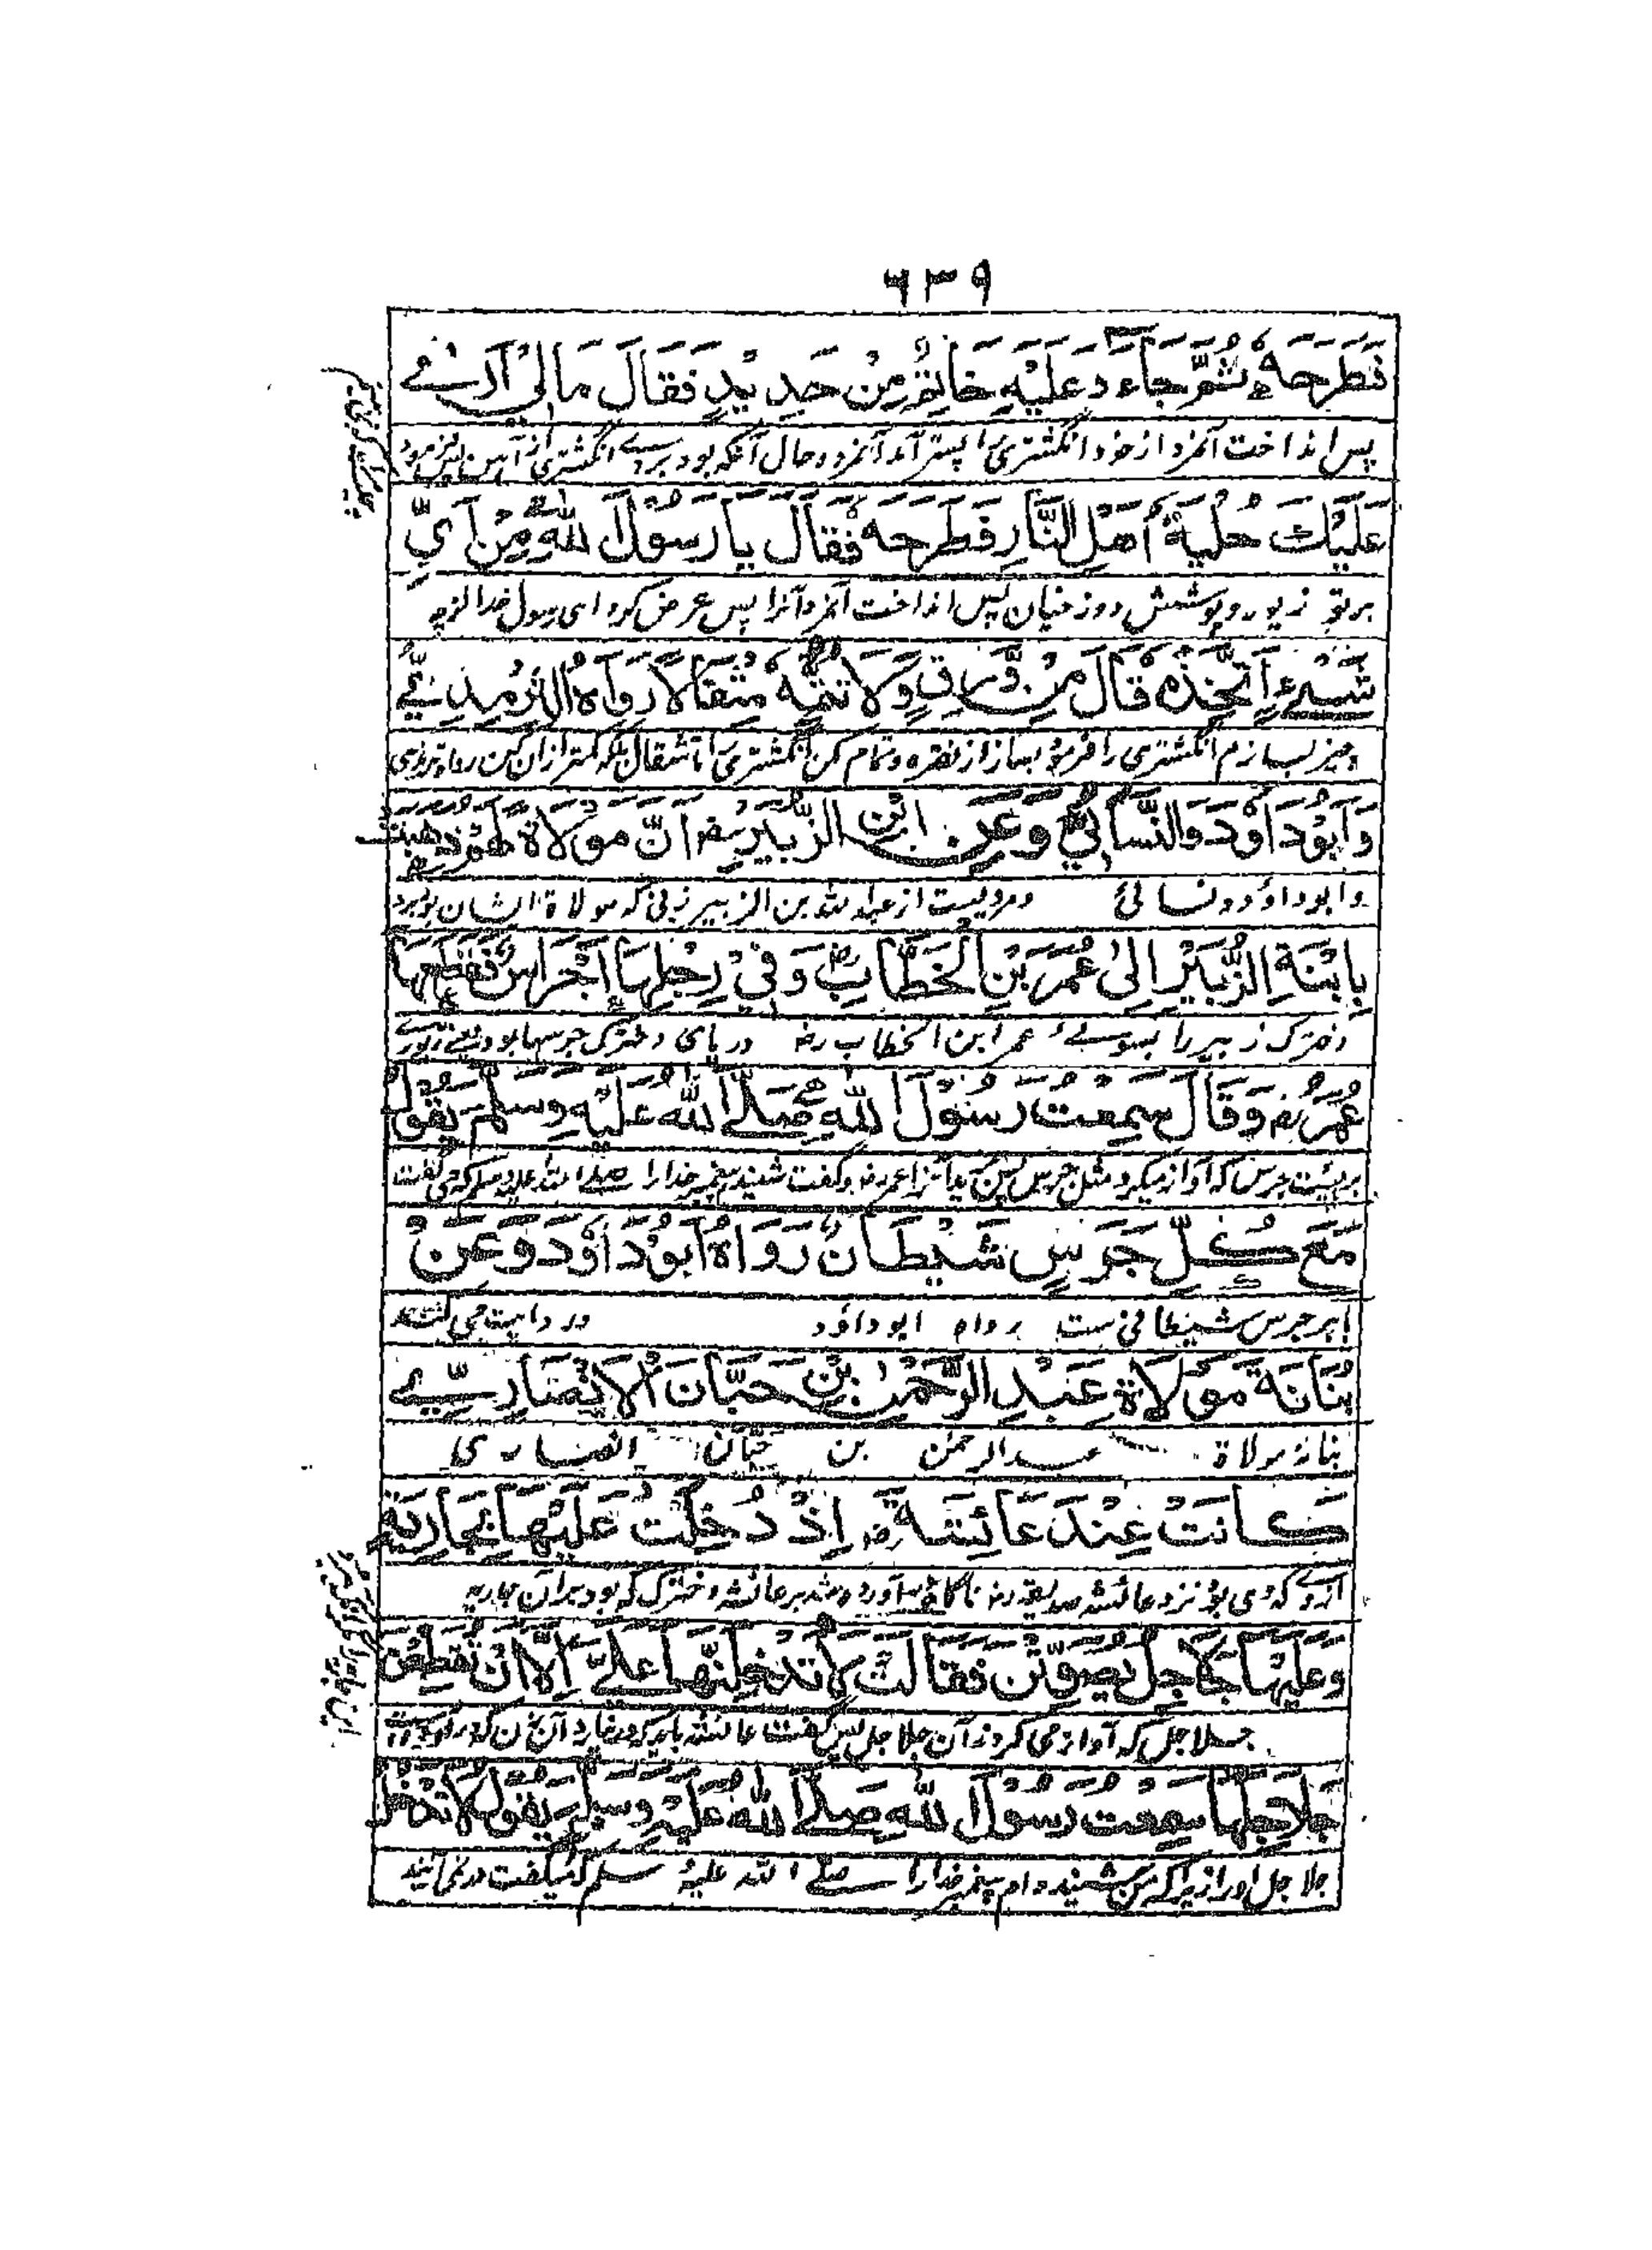 ٦٣٩
فَطَرَحَهُ ثُمَّ جَاءَ وَعَلَيْهِ خَاتَمٌ مِنْ حَدِيْدٍ فَقَالَ مَا لِيْ اَرٰى
پس انداخت آنمرد از خود انگشتری را پستر آمد آنمرد و حال آنکه بود بروے انگشتری از آہن پس فرمود
عَلَيْكَ حُلِيَةَ اَهْلِ النَّارِ فَطَرَحَهُ فَقَالَ يَا رَسُوْلَ اللهِ مِنْ اَيِّ
بر تو زیور و پوشش دوزخیان پس انداخت آنمرد آنرا پس عرض کرد ای رسول خدا از چه
شَيْءٍ اَتَّخِذُهُ قَالَ مِنْ وَّرِقٍ وَلَا تُتِمَّهُ مِثْقَالًا رَوَاهُ التِّرْمِذِيُّ
چیز بسازم انگشتری را فرمود بساز از نقره و تمام مکن انگشتری را تا مثقال بلکه کمتر از آن کن رواه ترمذی
وَاَبُوْدَاوٗدَ وَالنَّسَائِيُّ وَعَنِ ابْنِ الزُّبَيْرِ رض اَنَّ مَوْلَاةً لَهُمْ ذَهَبَتْ
وابوداؤد ونسائی ومرویست از عبدالله بن الزبیر که مولاة ایشان بود برد
بِابْنَةِ الزُّبَيْرِ اِلٰى عُمَرَ بْنِ الْخَطَّابِ رض وَفِيْ رِجْلِهَا اَجْرَاسٌ فَقَطَعَهَا
دخترک زبیر را بسوئے عمر ابن الخطاب رض و در پای دخترک جرسہا بود
عُمَرُ رض وَقَالَ سَمِعْتُ رَسُوْلَ اللهِ صَلَّى اللهُ عَلَيْهِ وَسَلَّمَ يَقُوْلُ
جرس که آواز میکرد مثل جرس پس برید آنرا عمر رض و گفت شنیدم پیغمبر خدا را صلے الله علیه وسلم که می گفت
مَعَ كُلِّ جَرَسٍ شَيْطَانٌ رَوَاهُ اَبُوْدَاوٗدَ وَعَنْ
با ہر جرس شیطانی ست رواه ابوداؤد و روایت می کنند
بُنَانَةَ مَوْلَاةِ عَبْدِ الرَّحْمٰنِ بْنِ حَيَّانَ الْاَنْصَارِيِّ
بنانه مولاة عبدالرحمٰن بن حیّان انصاری
كَانَتْ عِنْدَ عَائِشَةَ رض اِذْ دُخِلَتْ عَلَيْهَا بِجَارِيَةٍ
که وی بود نزد عائشه صدیقه رض ناگاه آورده شد بر عائشه دخترک که بود بر آن جاریه
وَعَلَيْهَا جَلَاجِلُ يُصَوِّتْنَ فَقَالَتْ لَا تُدْخِلَنَّهَا عَلَيَّ اِلَّا اَنْ تُقَطِّعْنَ
جلاجل که آواز می کردند آن جلاجل پس گفت عائشه
جَلَاجِلَهَا سَمِعْتُ رَسُوْلَ اللهِ صَلَّى اللهُ عَلَيْهِ وَسَلَّمَ يَقُوْلُ لَا تَدْخُلُ
جلاجل او را زیراکه من شنیده ام پیغمبر خدا را صلے الله علیه وسلم که میگفت در نمی آیند